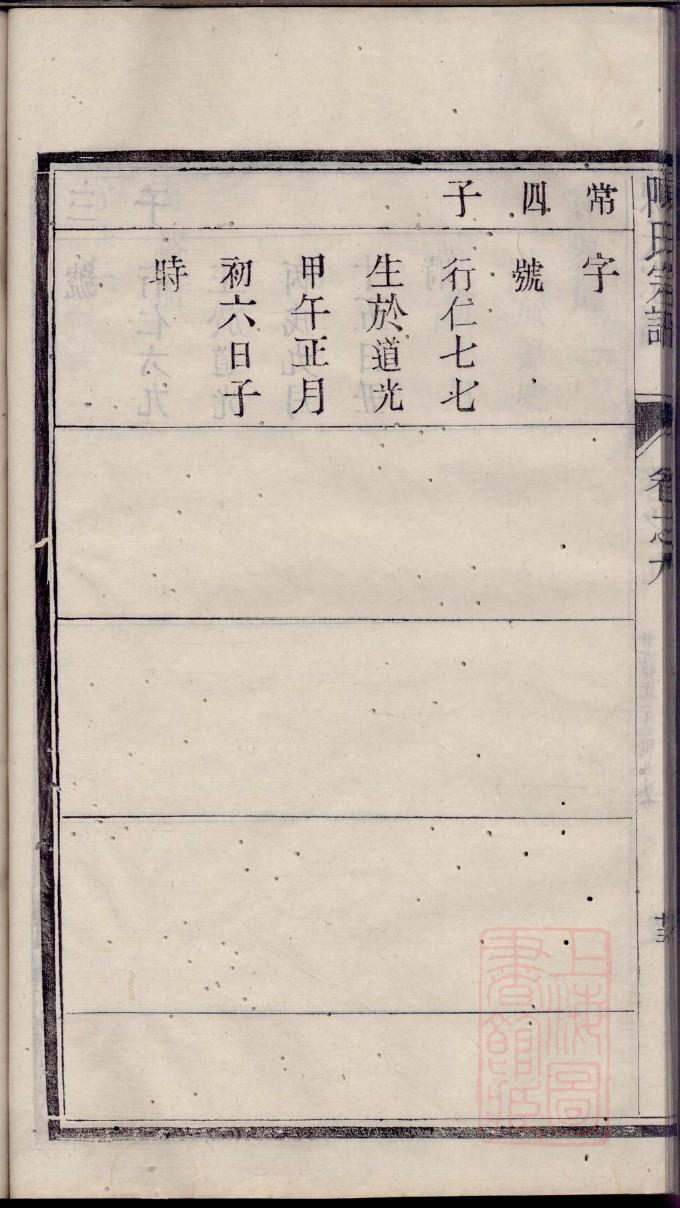 氏宗譜
卷之九
十三
常四子
字
號
行仁七七
生於道光
甲午正月
初六日子
時
上海圖書館藏